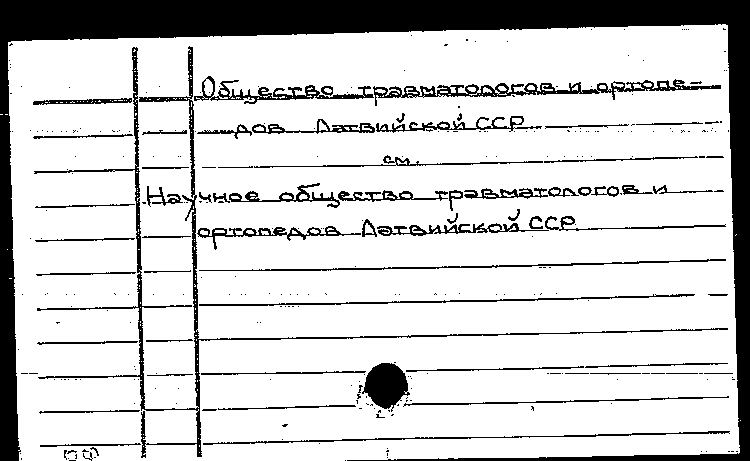 Общество травматологов и ортопе-
дов Латвийской ССР
см.
Научное общество травматологов и
ортопедов Латвийской ССР